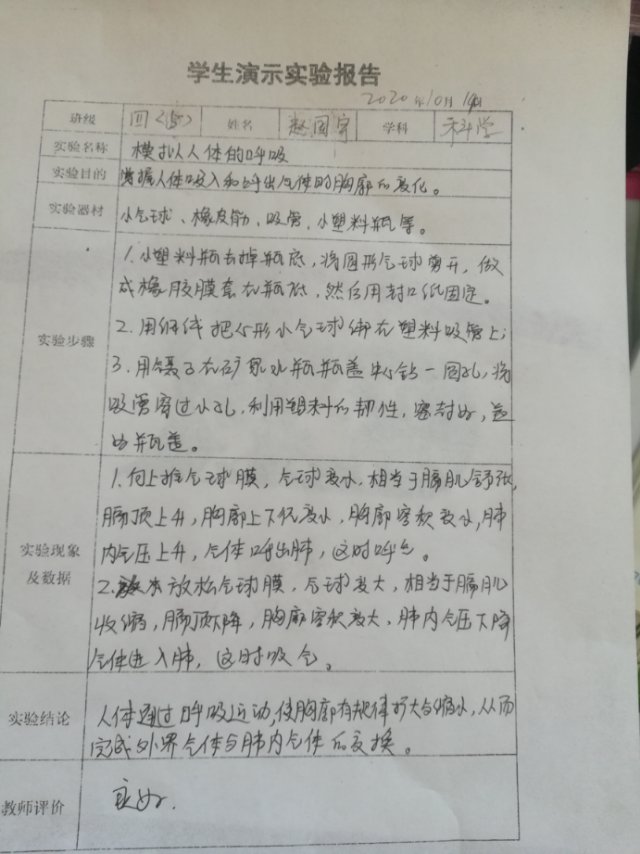 学生演示实验报告
2020年10月19日
班级 四(5) 姓名 赵国宇 学科 科学
实验名称 模拟人体的呼吸
实验目的 掌握人体吸入和呼出气体时胸廓的变化。
实验器材 小气球、橡皮筋、吸管、小塑料瓶等。
实验步骤
1.小塑料瓶去掉瓶底,将圆形气球剪开,做
成橡胶膜套在瓶底,然后用封口纸固定。
2.用细线把心形小气球绑在塑料吸管上;
3.用镊子在矿泉水瓶瓶盖中心钻一圆孔,将
吸管穿过小孔,利用塑料的韧性,密封好,盖
好瓶盖。
实验现象
及数据
1.向上推气球膜,气球变小,相当于膈肌舒张,
膈顶上升,胸廓上下径变小,胸廓容积变小,肺
内气压上升,气体呼出肺,这时呼气。
2.放松气球膜,气球变大,相当于膈肌
收缩,膈顶下降,胸廓容积变大,肺内气压下降
气体进入肺,这时吸气。
实验结论
人体通过呼吸运动,使胸廓有规律扩大与缩小,从而
完成外界气体与肺内气体的交换。
教师评价 良好.